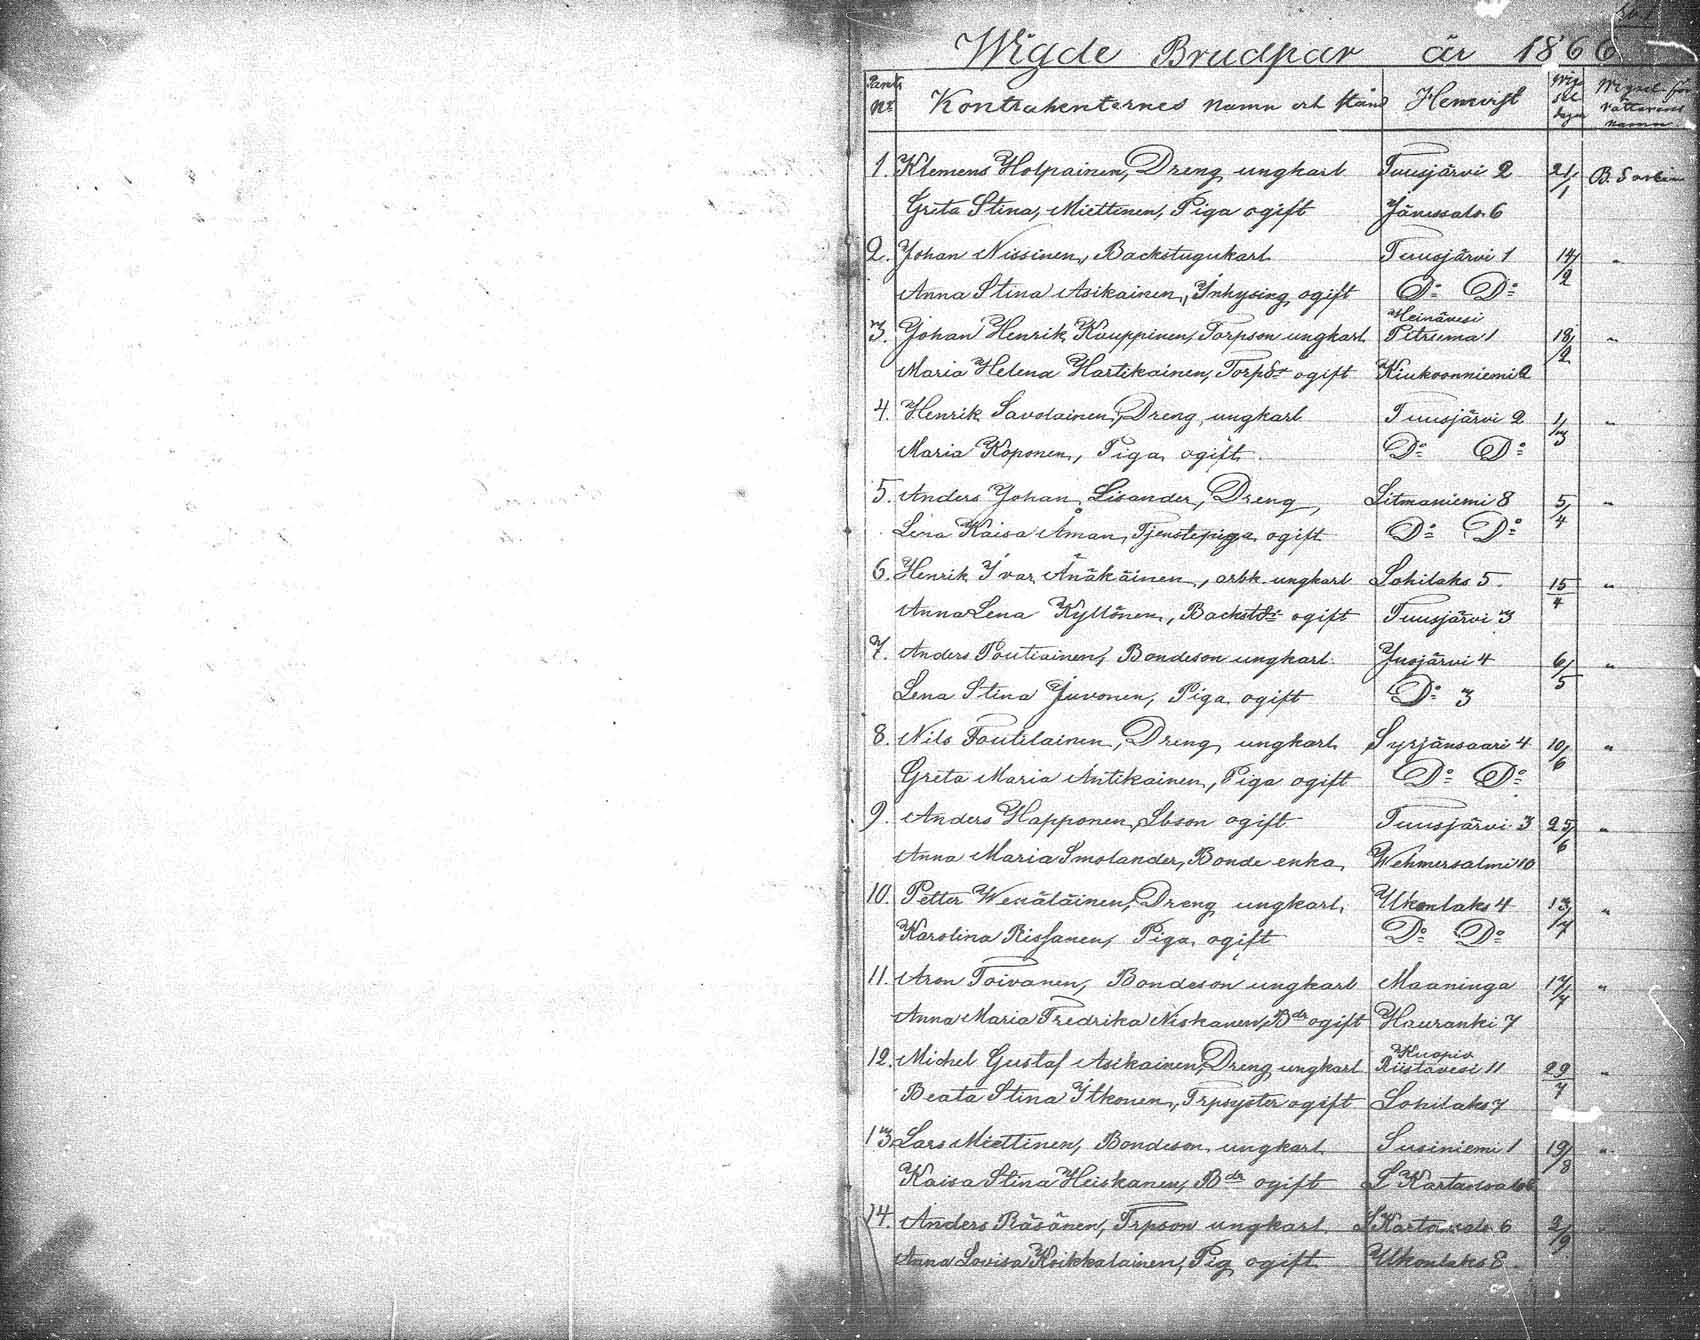 Wigde Brudpar år 1866
Parets No Kontrahenternes namn och stånd Hemvist Wigseldagen Wigsel förrättarens namn
1. Klemens Holpainen, Dreng ungkarl Tuusjärvi 2 21/1
Greta Stina Miettinen, Piga ogift Jänissalo 6
2. Johan Nissinen, Backstugukarl Tuusjärvi 1 14/2 "
Anna Stina Asikainen, Inhysing ogift Do Do
Heinävesi
3. Johan Henrik Kauppinen, Torpson ungkarl Petruma 1 18/2 "
Maria Helena Hartikainen, Torpdr ogift Kiukoonniemi 2
4. Henrik Savolainen, Dreng ungkarl Tuusjärvi 2 1/3 "
Maria Koponen, Piga ogift Do Do
5. Anders Johan Lisander, Dreng, Litmaniemi 8 5/4 "
Lena Kaisa Åman, Tjenstepiga ogift Do Do
6. Henrik Ivar Änäkäinen, arbk. ungkarl Lohilaks 5. 15/4 "
Anna Lena Kyllönen, Backstdr ogift Tuusjärvi 3
7. Anders Poutiainen, Bondeson ungkarl Juojärvi 4 6/5 "
Lena Stina Juvonen, Piga ogift Do 3
8. Nils Foutilainen, Dreng ungkarl Syrjänsaari 4 10/6 "
Greta Maria Antikainen, Piga ogift Do Do
9. Anders Happonen, Sbson ogift Tuusjärvi 3 25/6 "
Anna Maria Smolander, Bonde enka Wehmersalmi 10
10. Petter Wenäläinen, Dreng ungkarl, Ukonlaks 4 13/7 "
Karolina Rissanen, Piga ogift Do Do
11. Aron Toivanen, Bondeson ungkarl Maaninga 17/7 "
Anna Maria Fredrika Niskanen, Bdr ogift Hauranki 7
Kuopio
12. Michel Gustaf Asikainen, Dreng ungkarl Riistavesi 11 29/7 "
Beata Stina Itkonen, Trpsyster ogift Lohilaks 7
13. Lars Miettinen, Bondeson ungkarl Susiniemi 1 19/8 "
Kaisa Stina Heiskanen, Bdr ogift S Kartansalo
14. Anders Räsänen, Trpson ungkarl S Kartansalo 6 2/9
Anna Lovisa Koikkalainen, Pig ogift Ukonlaks 8.